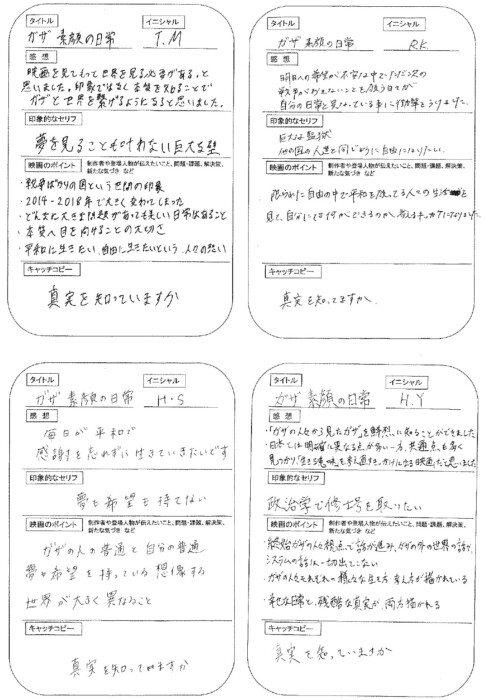 タイトル
イニシャル
ガザ 素顔の日常
T.M
感想
映画を見てもっと世界を見る必要がある、と
思いました。印象ではなく本質を知ることで
ガザと世界を繋げるようになると思いました。
印象的なセリフ
夢を見ることも叶わない巨大な壁
映画のポイント
制作者や登場人物が伝えたいこと、問題・課題、解決策、
新たな気づき など
・戦争ばかりの国という世間の印象
・2014〜2018年で大きく変わってしまった
・どんなに大きな問題があっても美しい日常はあること
・本質へ目を向けることの大切さ
・平和に生きたい、自由に生きたいという人々の想い
キャッチコピー
真実を知っていますか
タイトル
イニシャル
ガザ 素顔の日常
R.K
感想
明日への希望が不安な中で、ただ次の
自分の日常と
印象的なセリフ
巨大な監獄
他の国の人達と同じように自由になりたい。
映画のポイント
制作者や登場人物が伝えたいこと、問題・課題、解決策、
新たな気づき など
限られた自由の中で平和を願ってる人々の生活を
見て、自分には何ができるのか、考えるきっかけになりました
キャッチコピー
真実を知ってますか
タイトル
イニシャル
ガザ 素顔の日常
H・S
感想
毎日が平和で
感謝を忘れずに生きていきたいです
印象的なセリフ
夢も希望も持てない
映画のポイント
制作者や登場人物が伝えたいこと、問題・課題、解決策、
新たな気づき など
ガザの人の普通と自分の普通
夢や希望を持っている想像する
世界が大きく異なること
キャッチコピー
真実を知ってますか
タイトル
イニシャル
ガザ 素顔の日常
H.Y
感想
・「ガザの人々から見たガザ」を鮮烈に知ることができました
・日本とは明確に異なる点が多い一方、共通点も多く
見つかり、「生きる意味」を考え直すきっかけになる映画だと思いました
印象的なセリフ
政治学で修士号を取りたい
映画のポイント
制作者や登場人物が伝えたいこと、問題・課題、解決策、
新たな気づき など
・終始ガザの人々視点で話が進み、ガザの外の世界の話や
システムの話は一切出てこない
・ガザの人々それぞれの様々な生き方・考え方が描かれている
・幸せな日常と、残酷な真実が、両方描かれる
キャッチコピー
真実を知っていますか